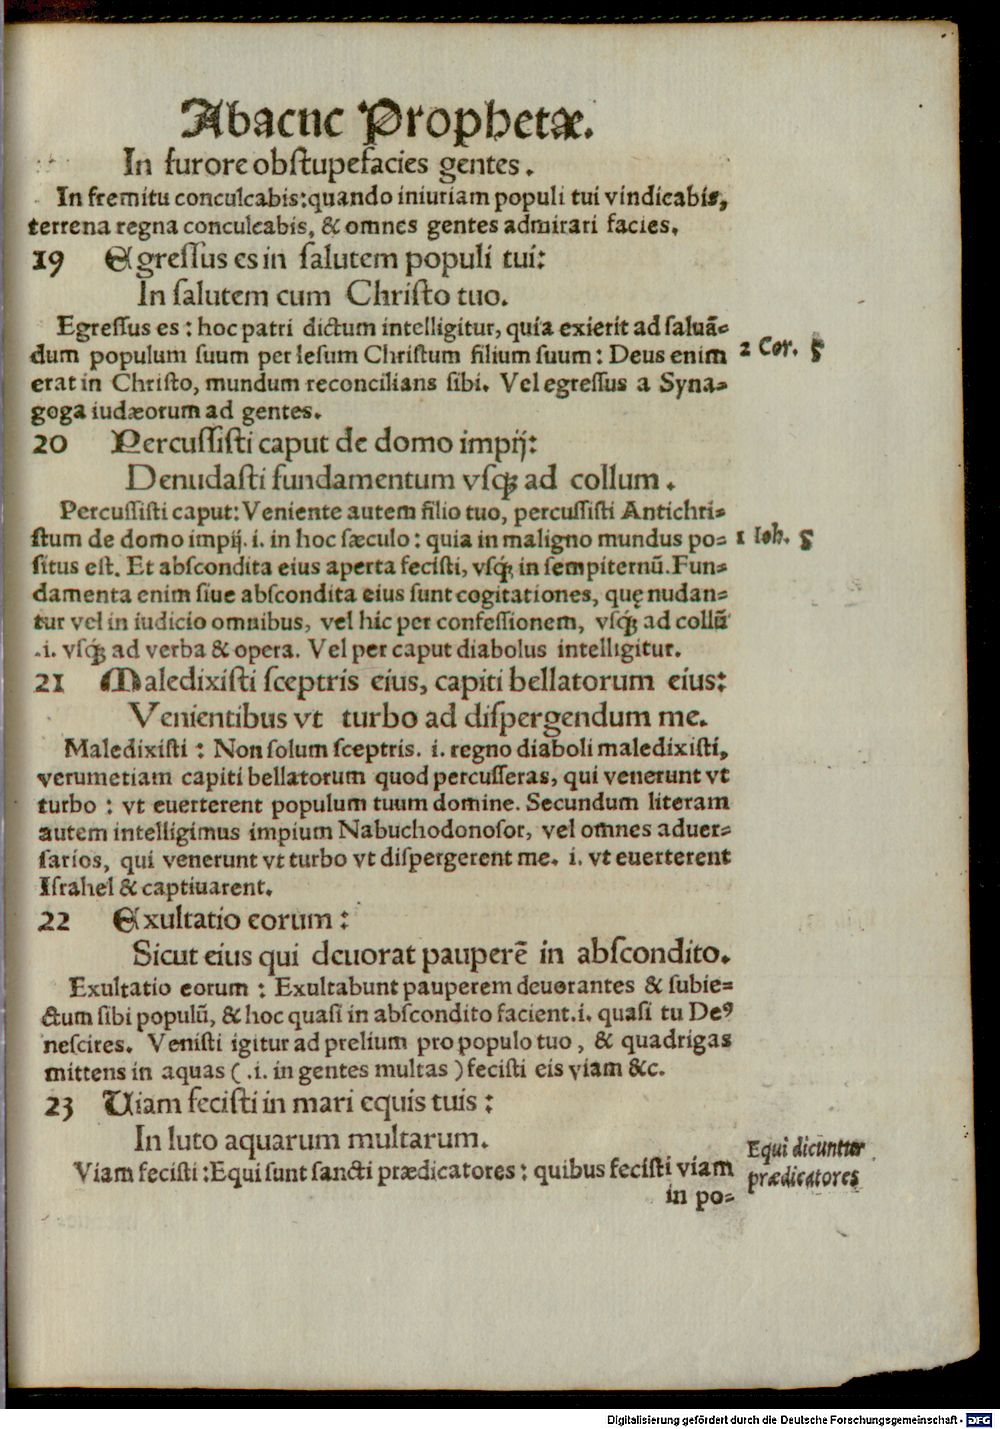 Abacuc Prophetæ.
In furore obſtupefacies gentes.
In fremitu conculcabis: quando iniuriam populi tui vindicabis,
terrena regna conculcabis, & omnes gentes admirari facies.
19 Egreſſus es in ſalutem populi tui:
In ſalutem cum Chriſto tuo.
Egreſſus es: hoc patri dictum intelligitur, quia exierit ad ſaluã⸗
dum populum ſuum per Ieſum Chriſtum filium ſuum: Deus enim
2 Cor. 5
erat in Chriſto, mundum reconcilians ſibi. Vel egreſſus a Syna⸗
goga iudæorum ad gentes.
20 Percuſſiſti caput de domo impij:
Denudaſti fundamentum vſq; ad collum.
Percuſſiſti caput: Veniente autem filio tuo, percuſſiſti Antichri⸗
ſtum de domo impij. i. in hoc ſæculo: quia in maligno mundus po⸗
1 Ioh. 5
ſitus eſt. Et abſcondita eius aperta feciſti, vſq; in ſempiternũ. Fun⸗
damenta enim ſiue abſcondita eius ſunt cogitationes, quę nudan⸗
tur vel in iudicio omnibus, vel hic per confeſſionem, vſq; ad collũ
.i. vſq; ad verba & opera. Vel per caput diabolus intelligitur.
21 Maledixiſti ſceptris eius, capiti bellatorum eius:
Venientibus vt turbo ad diſpergendum me.
Maledixiſti: Non ſolum ſceptris. i. regno diaboli maledixiſti,
verumetiam capiti bellatorum quod percuſſeras, qui venerunt vt
turbo: vt euerterent populum tuum domine. Secundum literam
autem intelligimus impium Nabuchodonoſor, vel omnes aduer⸗
ſarios, qui venerunt vt turbo vt diſpergerent me. i. vt euerterent
Iſrahel & captiuarent.
22 Exultatio eorum:
Sicut eius qui deuorat pauperẽ in abſcondito.
Exultatio eorum: Exultabunt pauperem deuorantes & ſubie⸗
ctum ſibi populũ, & hoc quaſi in abſcondito facient. i. quaſi tu Deꝰ
neſcires. Veniſti igitur ad prelium pro populo tuo, & quadrigas
mittens in aquas (.i. in gentes multas) feciſti eis viam &c.
23 Viam feciſti in mari equis tuis:
In luto aquarum multarum.
Viam feciſti: Equi ſunt ſancti prædicatores: quibus feciſti viam
in po⸗
Equi dicuntur
prædicatores
Digitalisierung gefördert durch die Deutsche Forschungsgemeinschaft - DFG